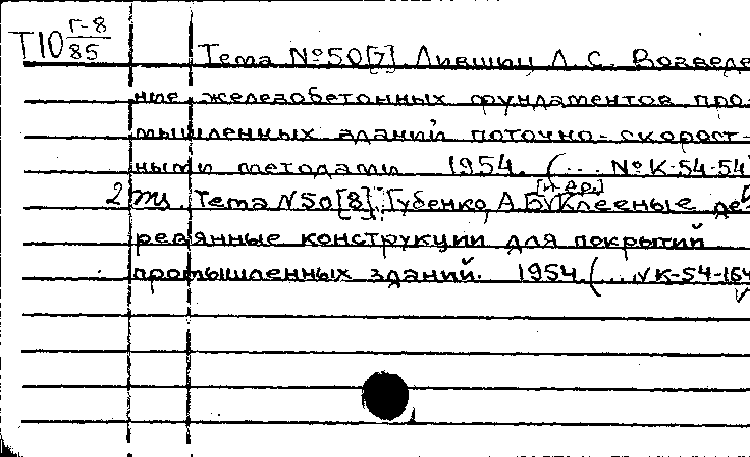 Т10 Г-8/85
Тема №50[7] Лившиц Л. С. Возведе
ние железобетонных фундаментов про
мышленных зданий поточно-скорост-
ными методами 1954. (... №К-54-54
2 Тема №50[8]. Губенко, А.Б. [и др.] Клееные де
ревянные конструкции для покрытий
промышленных зданий. 1954 (... №К-54-164